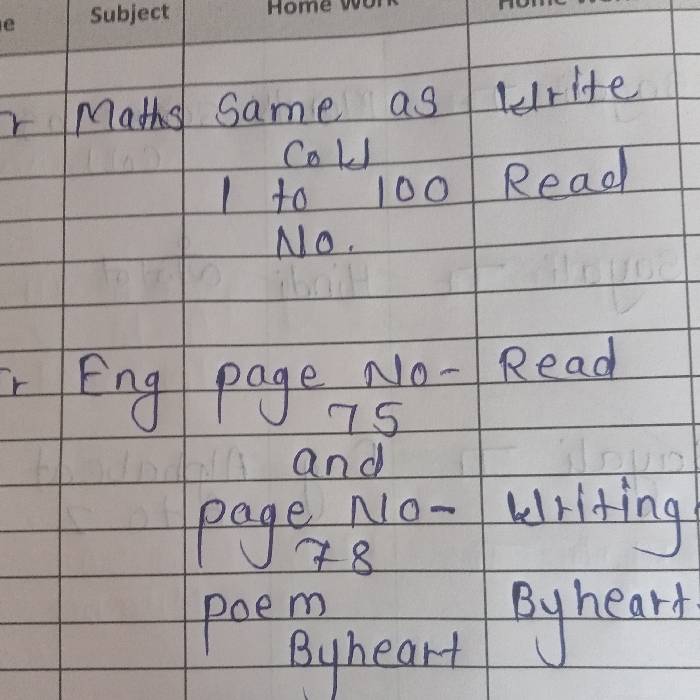 Subject Home Work
Maths Same as Write
1 to 100 Read
No.
Eng page No- Read
75
and
page No- Writing
78
poem Byheart
Byheart